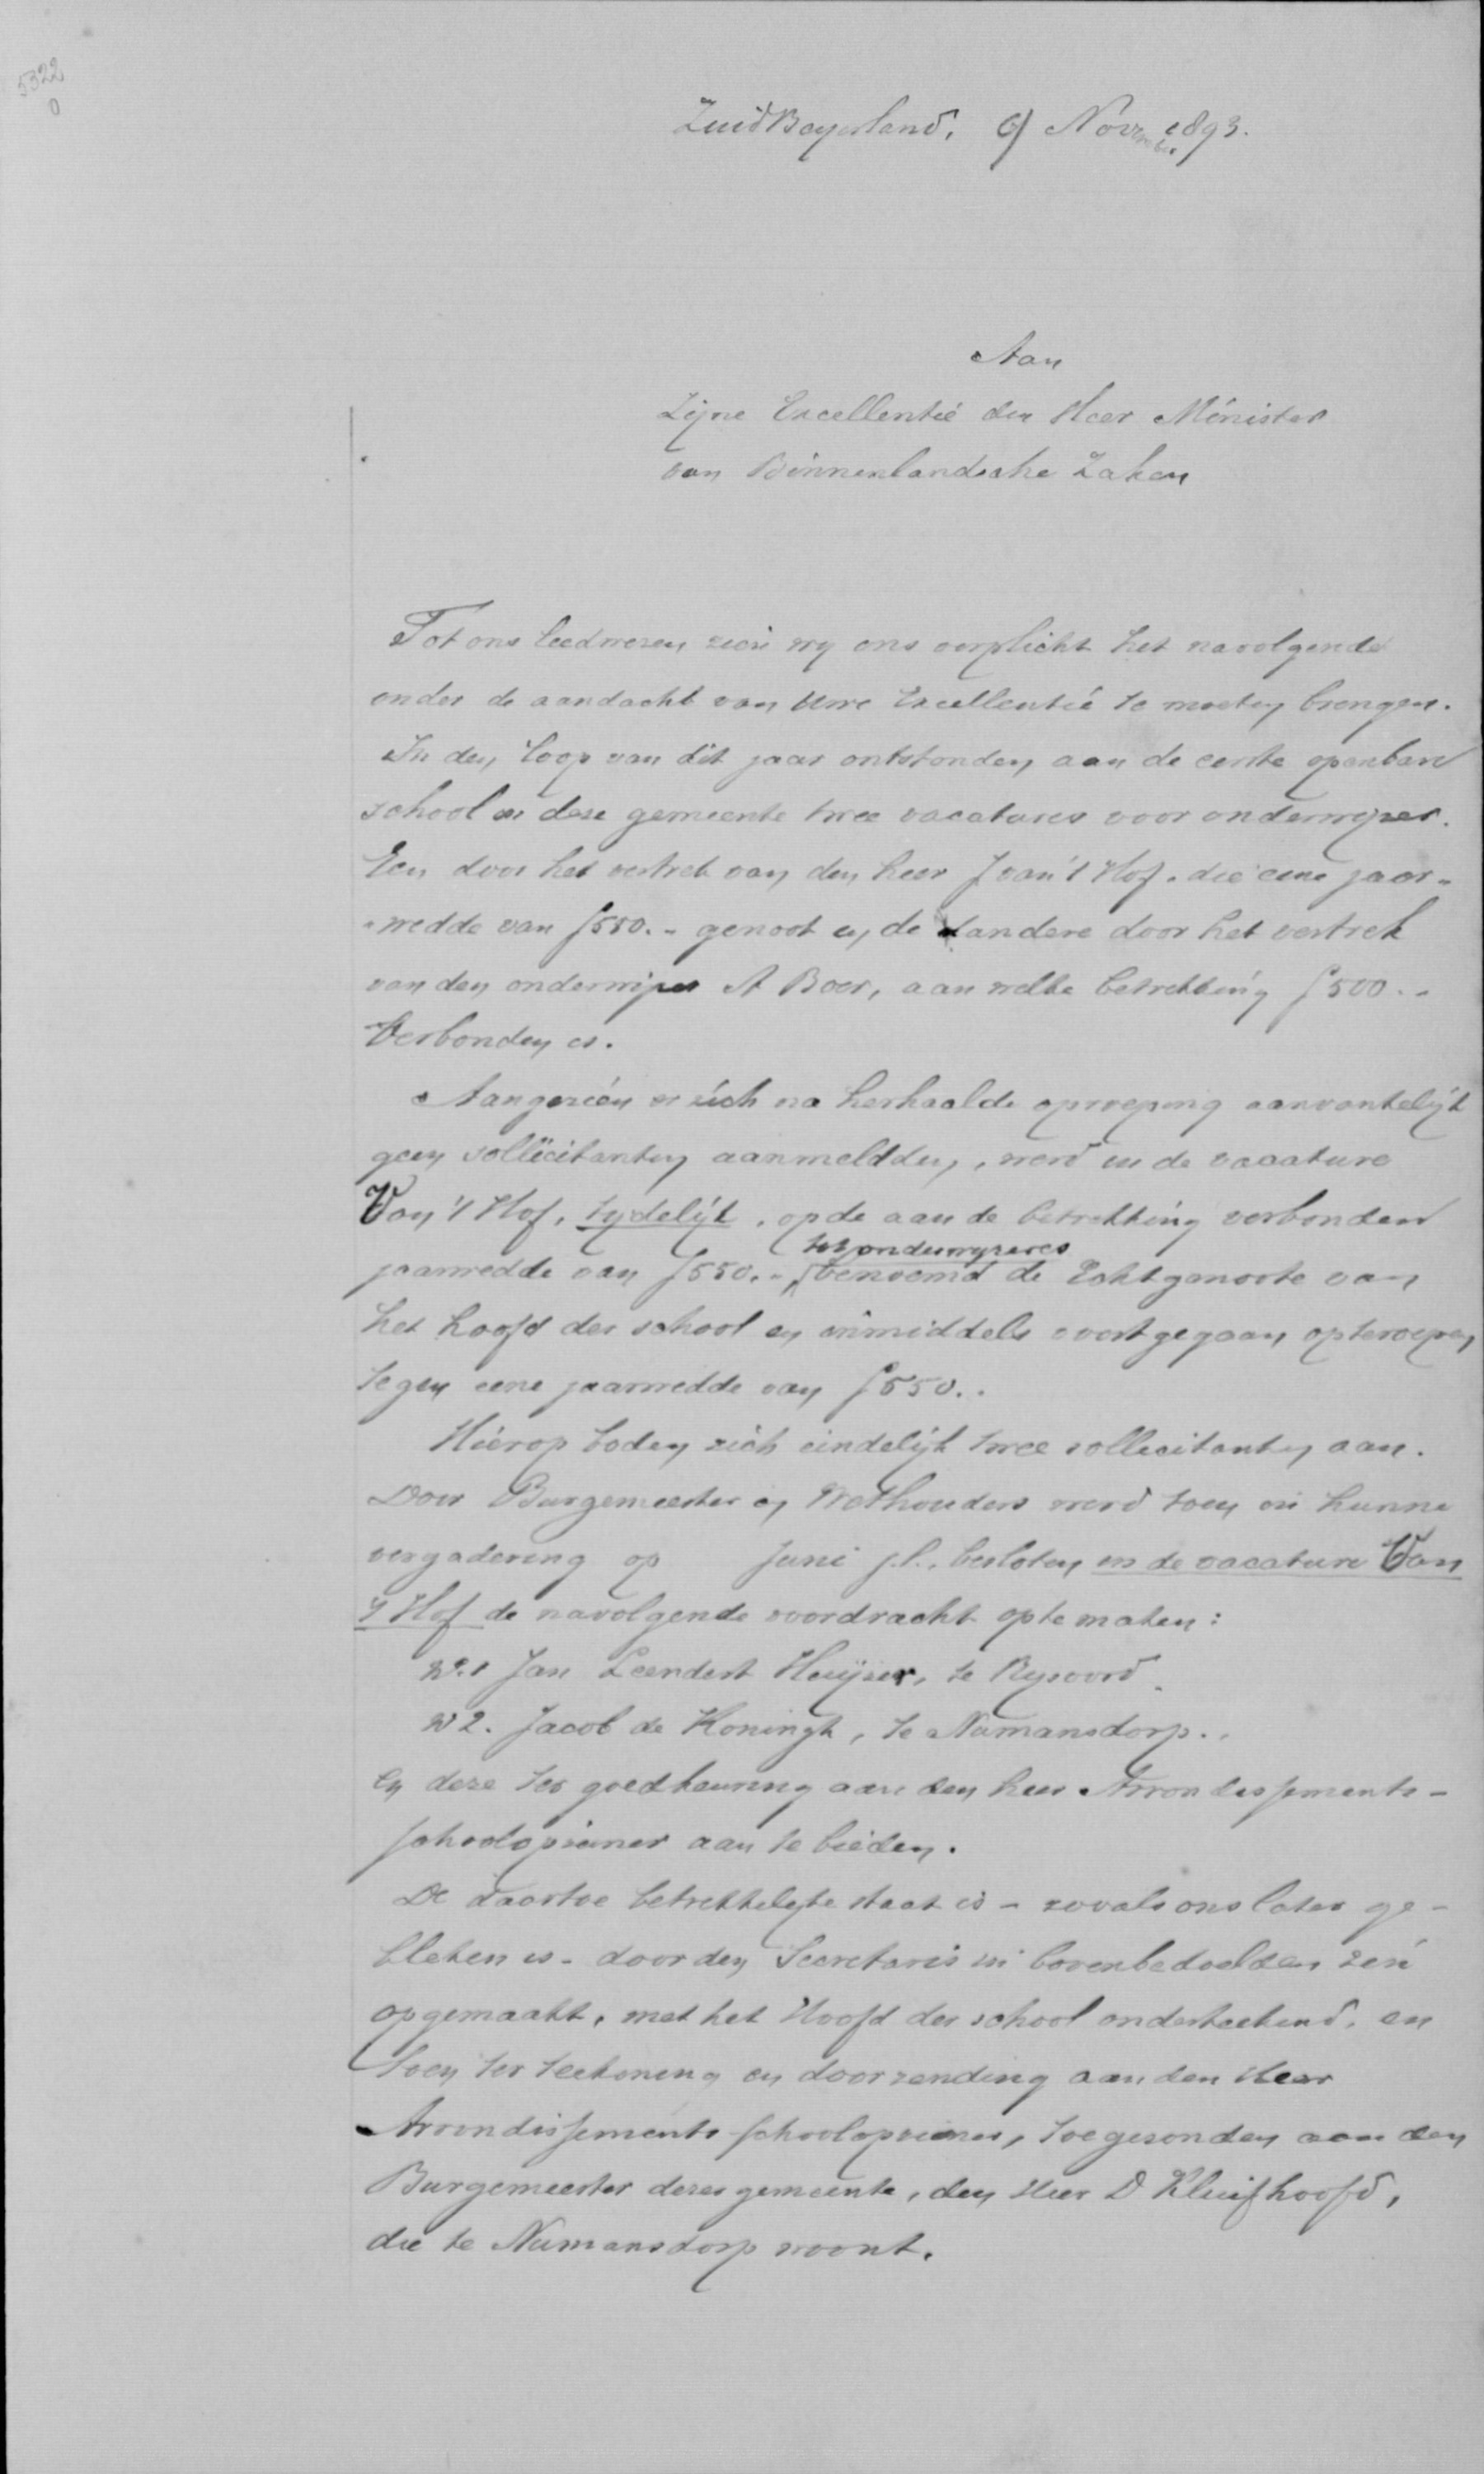 5322
0
ZuidBeyerland, 9 November 1893.
Aan
Zijne Excellentie den Heer Minister
van Binnenlandsche Zaken
Tot ons leedwezen zien wy ons verplicht het navolgende
onder de aandacht van Uwe Excellentie te moeten brengen.
In den loop van dit jaar ontstonden aan de eerste openbare
school in deze gemeente twee vacatures voor onderwijzer.
Een door het vertrek van den heer J van 't Hof, die eene jaar-
wedde van f550.- genoot en de andere door het vertrek
van den onderwijzer A Boer, aan welke betrekking f500.-
Verbonden is.
Aangezien er zich na herhaalde oproeping aanvankelijk
geen sollicitanten aanmeldden, werd in de vacature
Van 't Hof, tydelijk, op de aan de betrekking verbonden
tot onderwyzeres
jaarwedde van f550.- benoemd de Echtgenoote van
het hoofd der school en inmiddels voortgegaan opteroepen
tegen eene jaarwedde van f550..
Hierop boden zich eindelijk twee sollicitanten aan.
Door Burgemeester en Wethouders werd toen in hunne
vergadering op Juni j.l., besloten in de vacature Van
't Hof de navolgende voordracht op te maken:
No. 1 Jan Leendert Huijser, te Rysoord.
No 2. Jacob de Koningh, te Numansdorp.
en deze ter goedkeuring aan den heer Arrondissements-
schoolopziener aan te bieden.
De daartoe betrekkelijke staat is - zooals ons later ge-
bleken is - door den Secretaris in bovenbedoelden zin
opgemaakt, met het Hoofd der school onderteekend, en
toen ter teekening en doorzending aan den Heer
Arrondissements schoolopziener, toegezonden aan den
Burgemeester dezer gemeente, den Heer D Kluifhoofd,
die te Numansdorp woont.